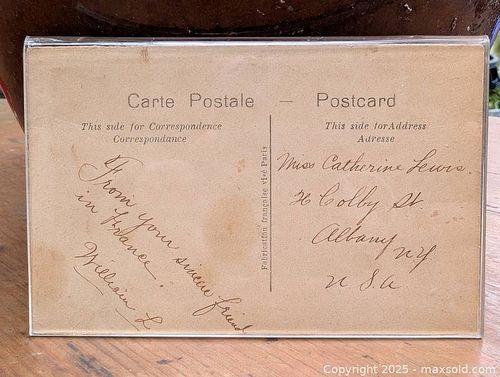 Carte Postale — Postcard
This side for Correspondence
Correspondance
This side for Address
Adresse
From your sincere friend
in France.
William L
Fabrication française visé Paris
Miss Catherine Lewis.
Colby St
Albany NY
U S.a.
Copyright 2025 - maxsold.com